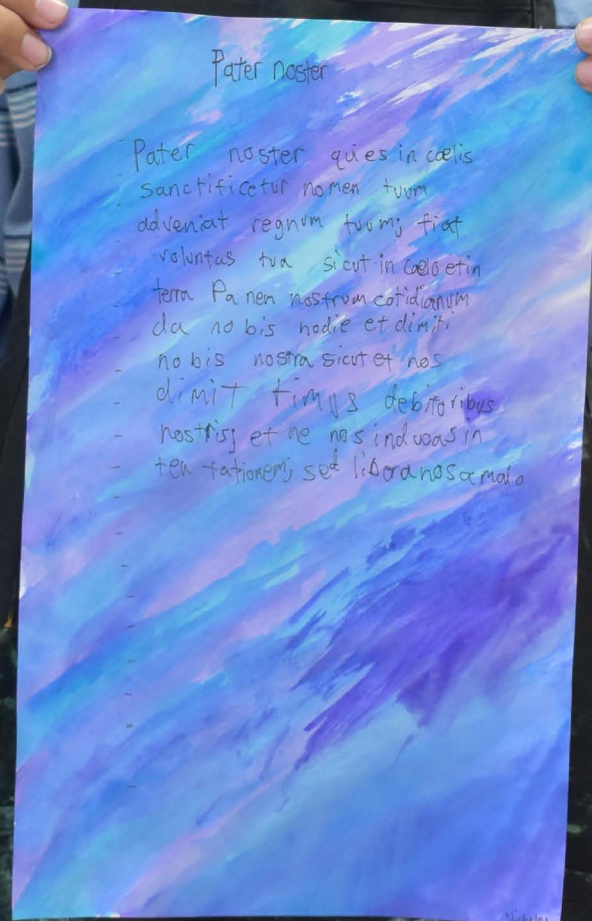 Pater noster
Pater noster qui es in cælis
sanctificetur nomen tuum
adveniat regnum tuum; fiat
voluntas tua sicut in cælo et in
terra Panem nostrum cotidianum
da nobis hodie et dimiti
nobis nostra sicut et nos
dimit timus debitoribus
nostris; et ne nos inducas in
ten tationem; sed libera nos a malo